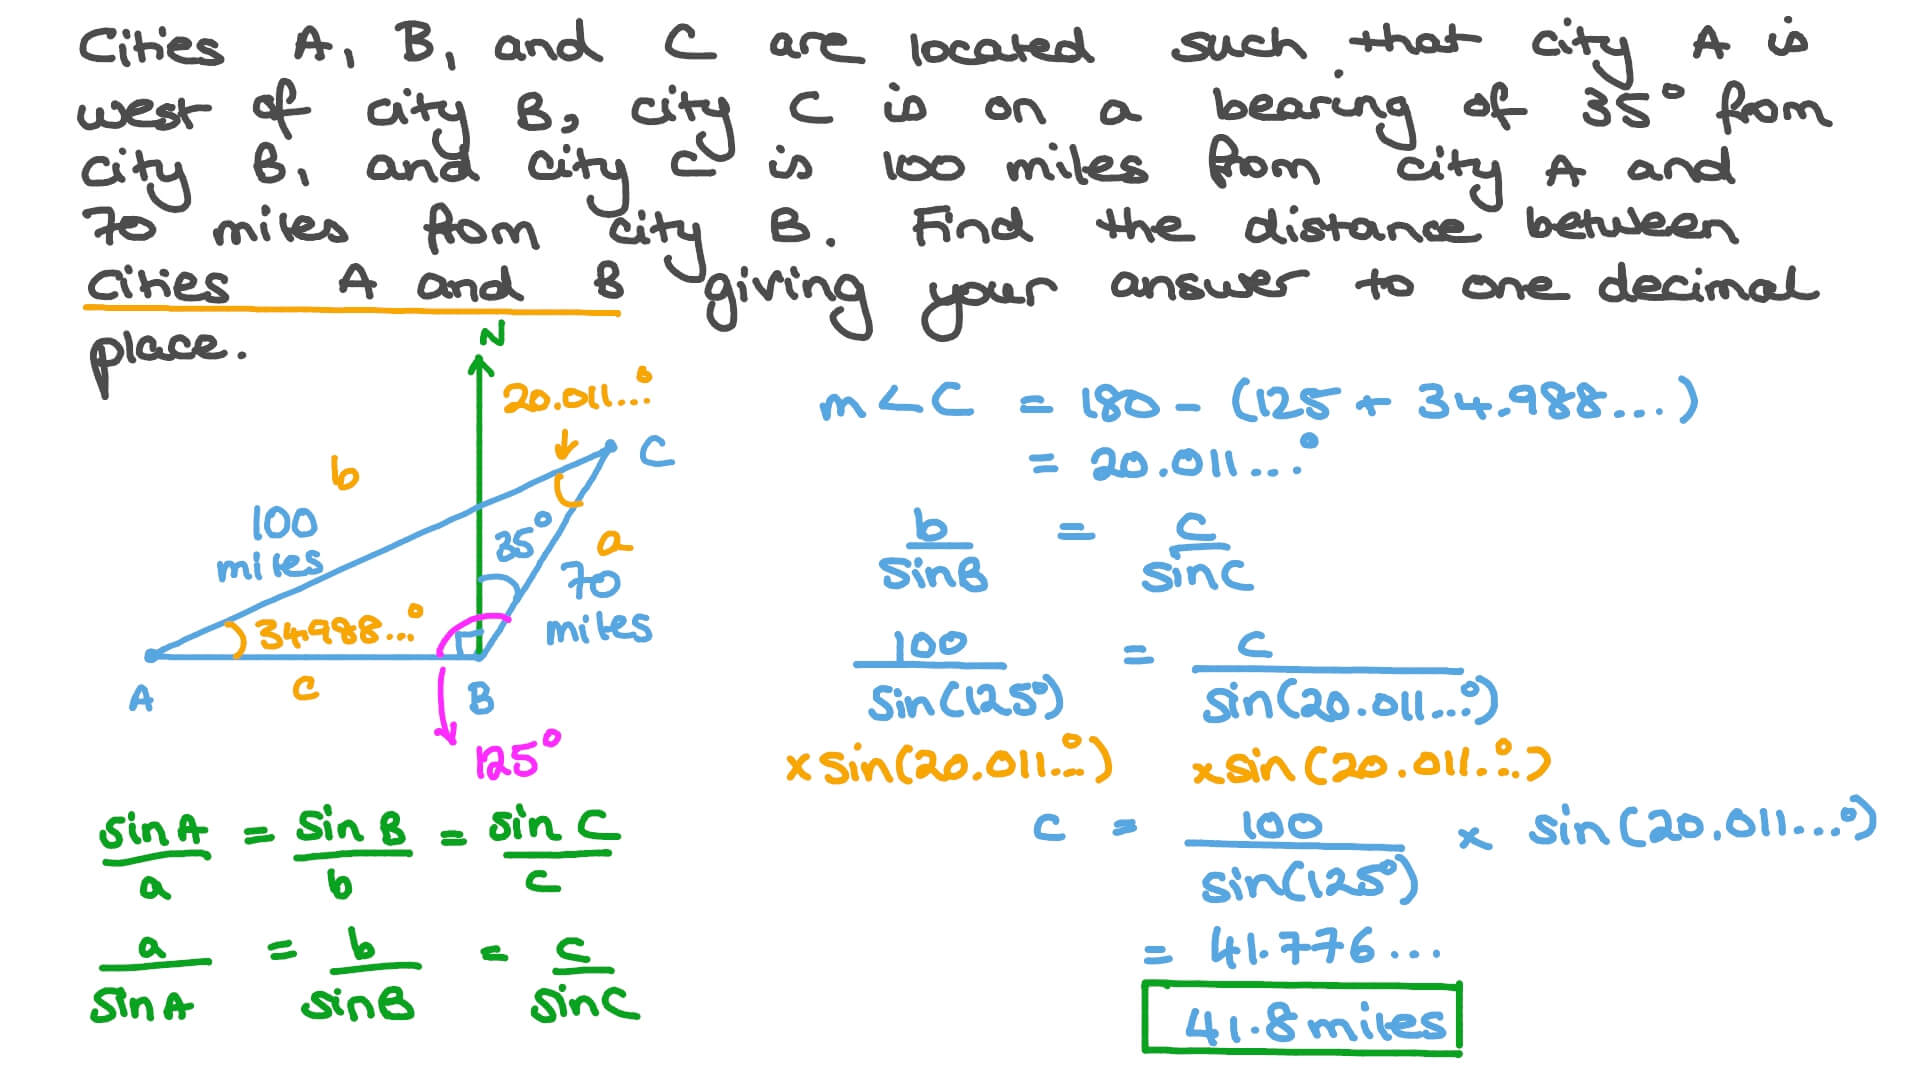 Cities A, B, and C are located such that city A is
west of city B, city C is on a bearing of 35° from
city B, and city C is 100 miles from city A and
70 miles from city B. Find the distance between
cities A and B giving your answer to one decimal
place.
N
20.011...°
C
b
100
miles
35°
a
70
miles
34.988...°
A
c
B
125°
sin A / a = sin B / b = sin C / c
a / sin A = b / sin B = c / sin C
m∠C = 180 - (125 + 34.988...)
= 20.011...°
b / sin B = c / sin C
100 / sin(125°) = c / sin(20.011...°)
× sin(20.011...°) × sin(20.011...°)
c = 100 / sin(125°) × sin(20.011...°)
= 41.776...
41.8 miles